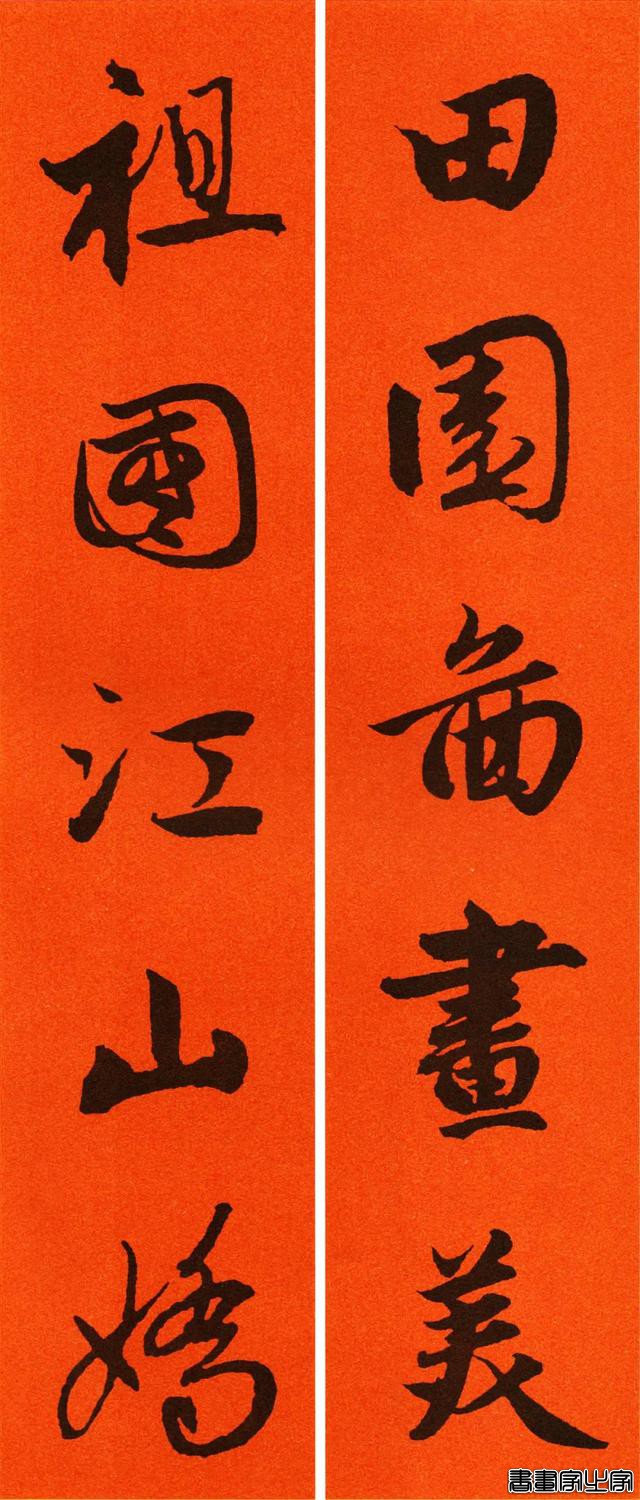 田園畫畫美
祖國江山嬌
書畫家必字